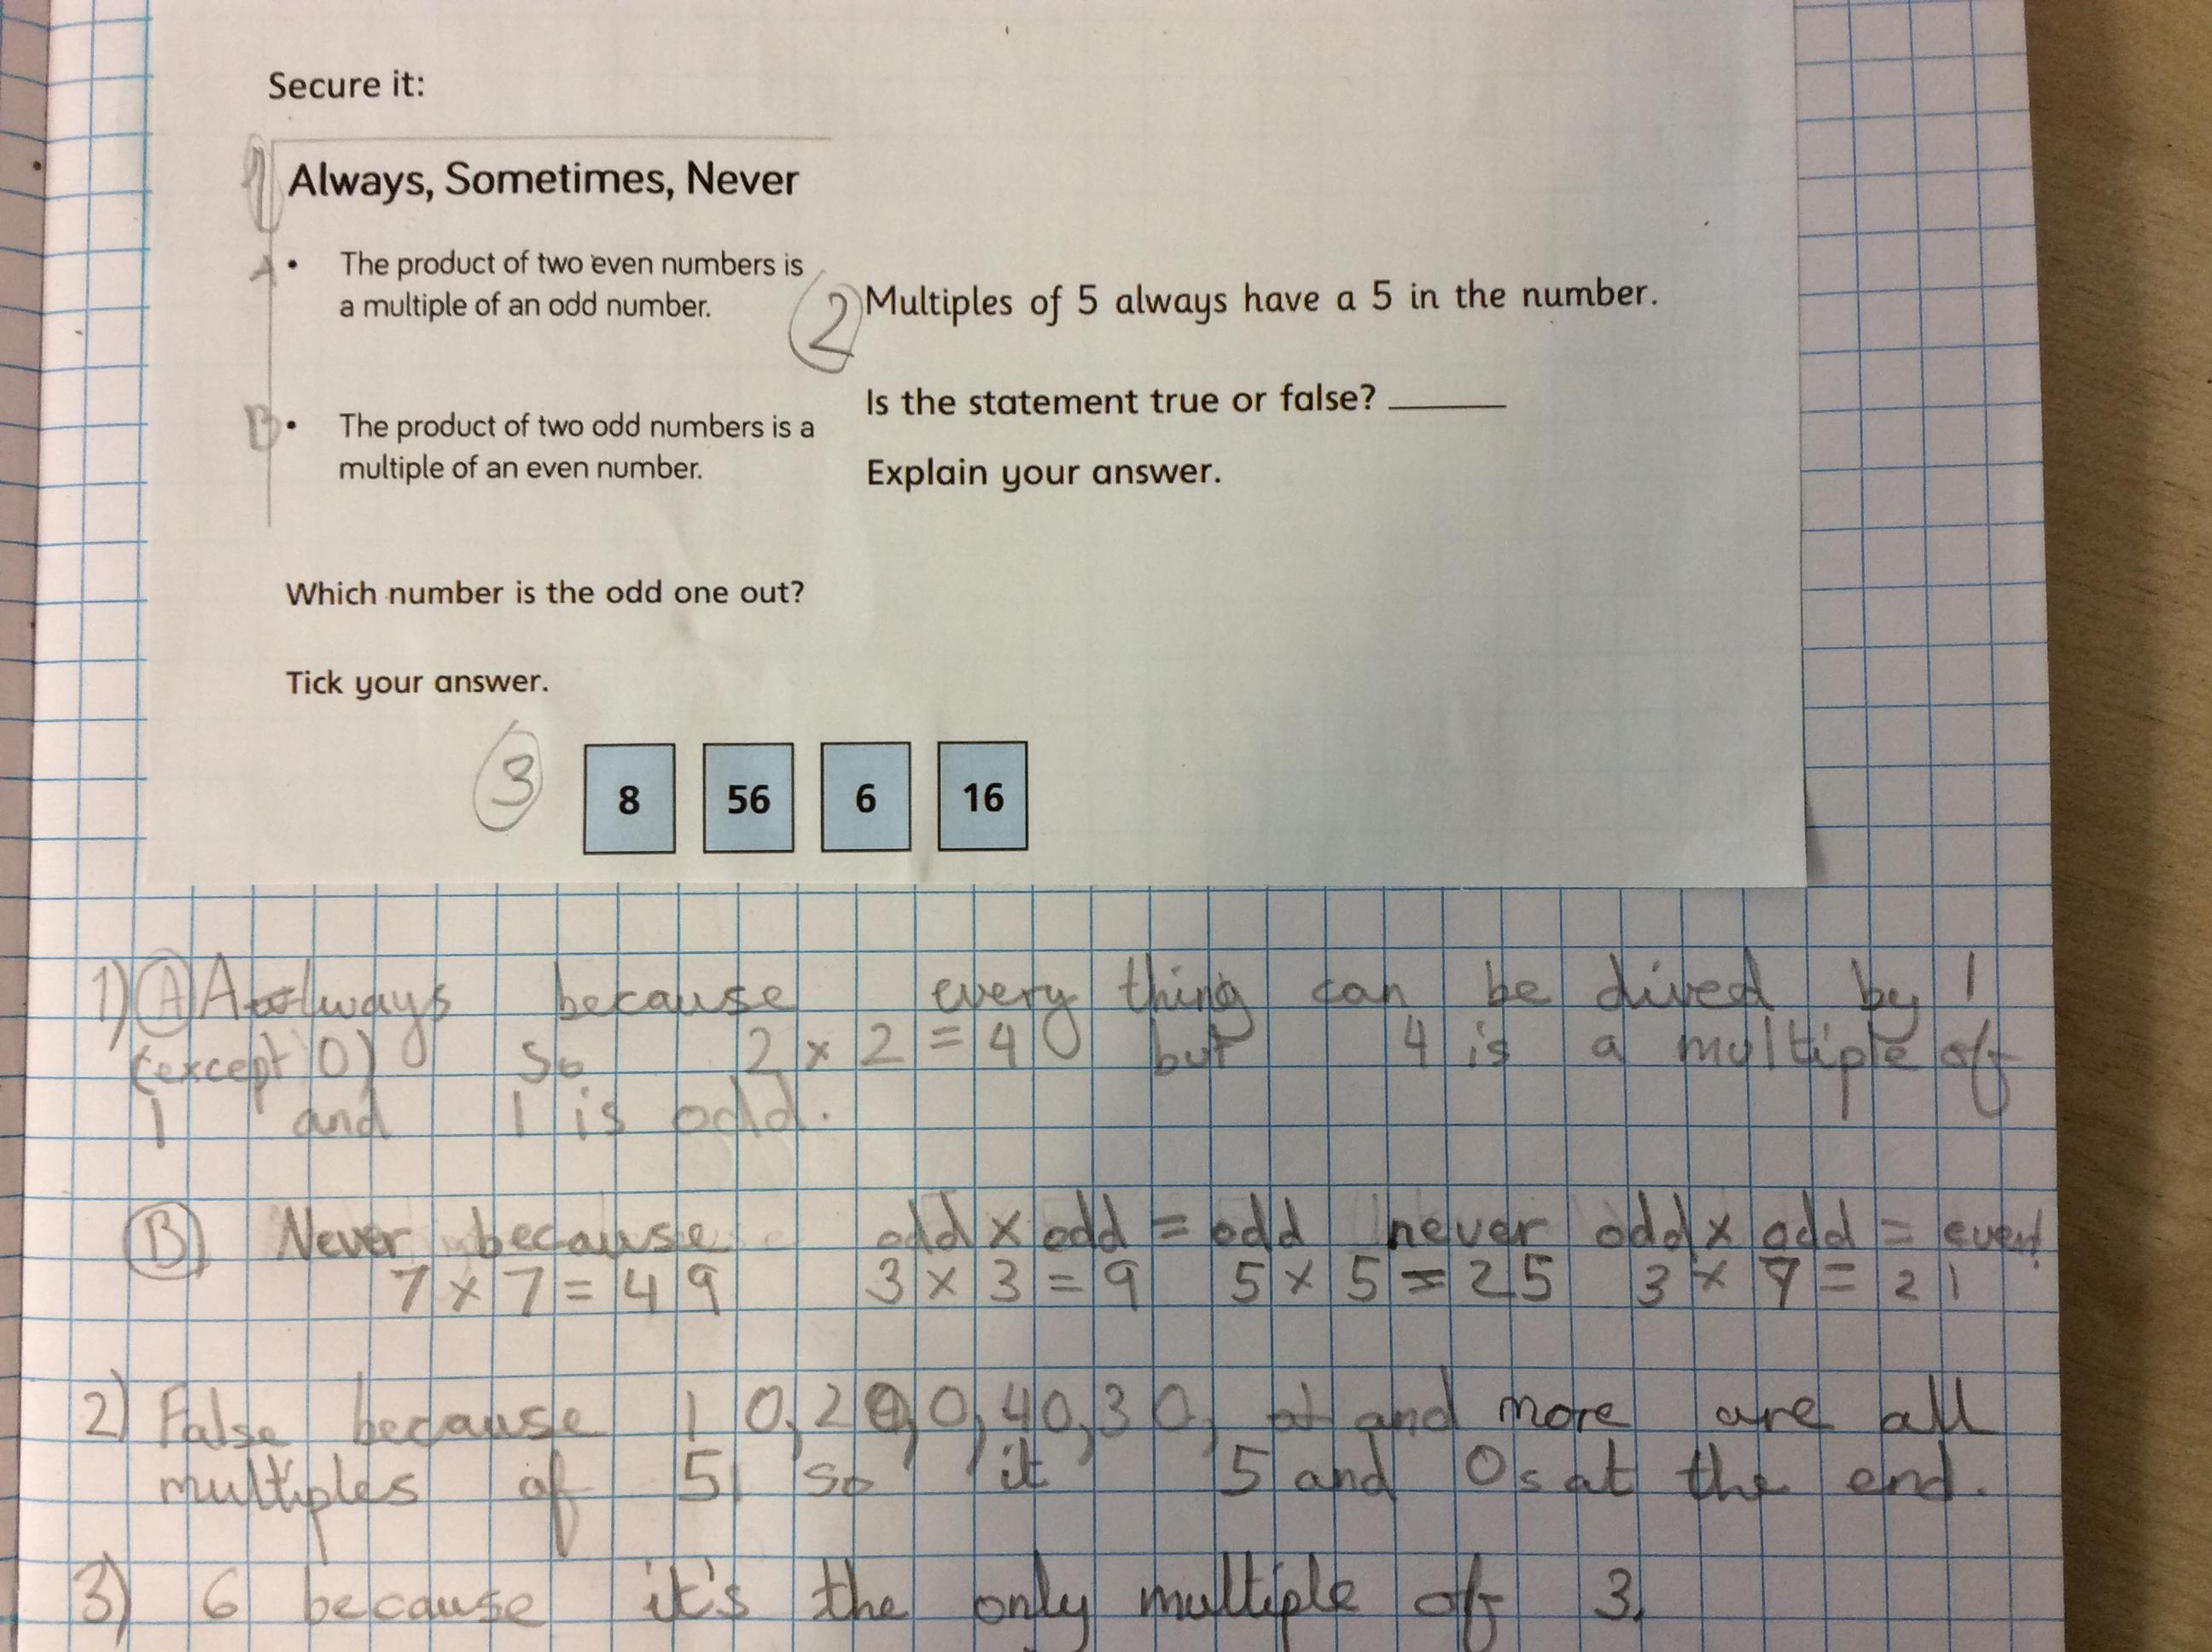 Secure it:
1
Always, Sometimes, Never
A • The product of two even numbers is
a multiple of an odd number.
B • The product of two odd numbers is a
multiple of an even number.
2 Multiples of 5 always have a 5 in the number.
Is the statement true or false? ______
Explain your answer.
Which number is the odd one out?
Tick your answer.
3 8 56 6 16
1) A Always because every thing can be dived by 1
(except 0) So 2 x 2 = 4 but 4 is a multiple of
1 and 1 is odd.
B Never because odd x odd = odd never odd x odd = even!
7 x 7 = 49 3 x 3 = 9 5 x 5 = 25 3 x 7 = 21
2) False because 10, 20, 0, 40, 30, and more are all
multiples of 5 so it 5 and 0s at the end.
3) 6 because it's the only multiple of 3.